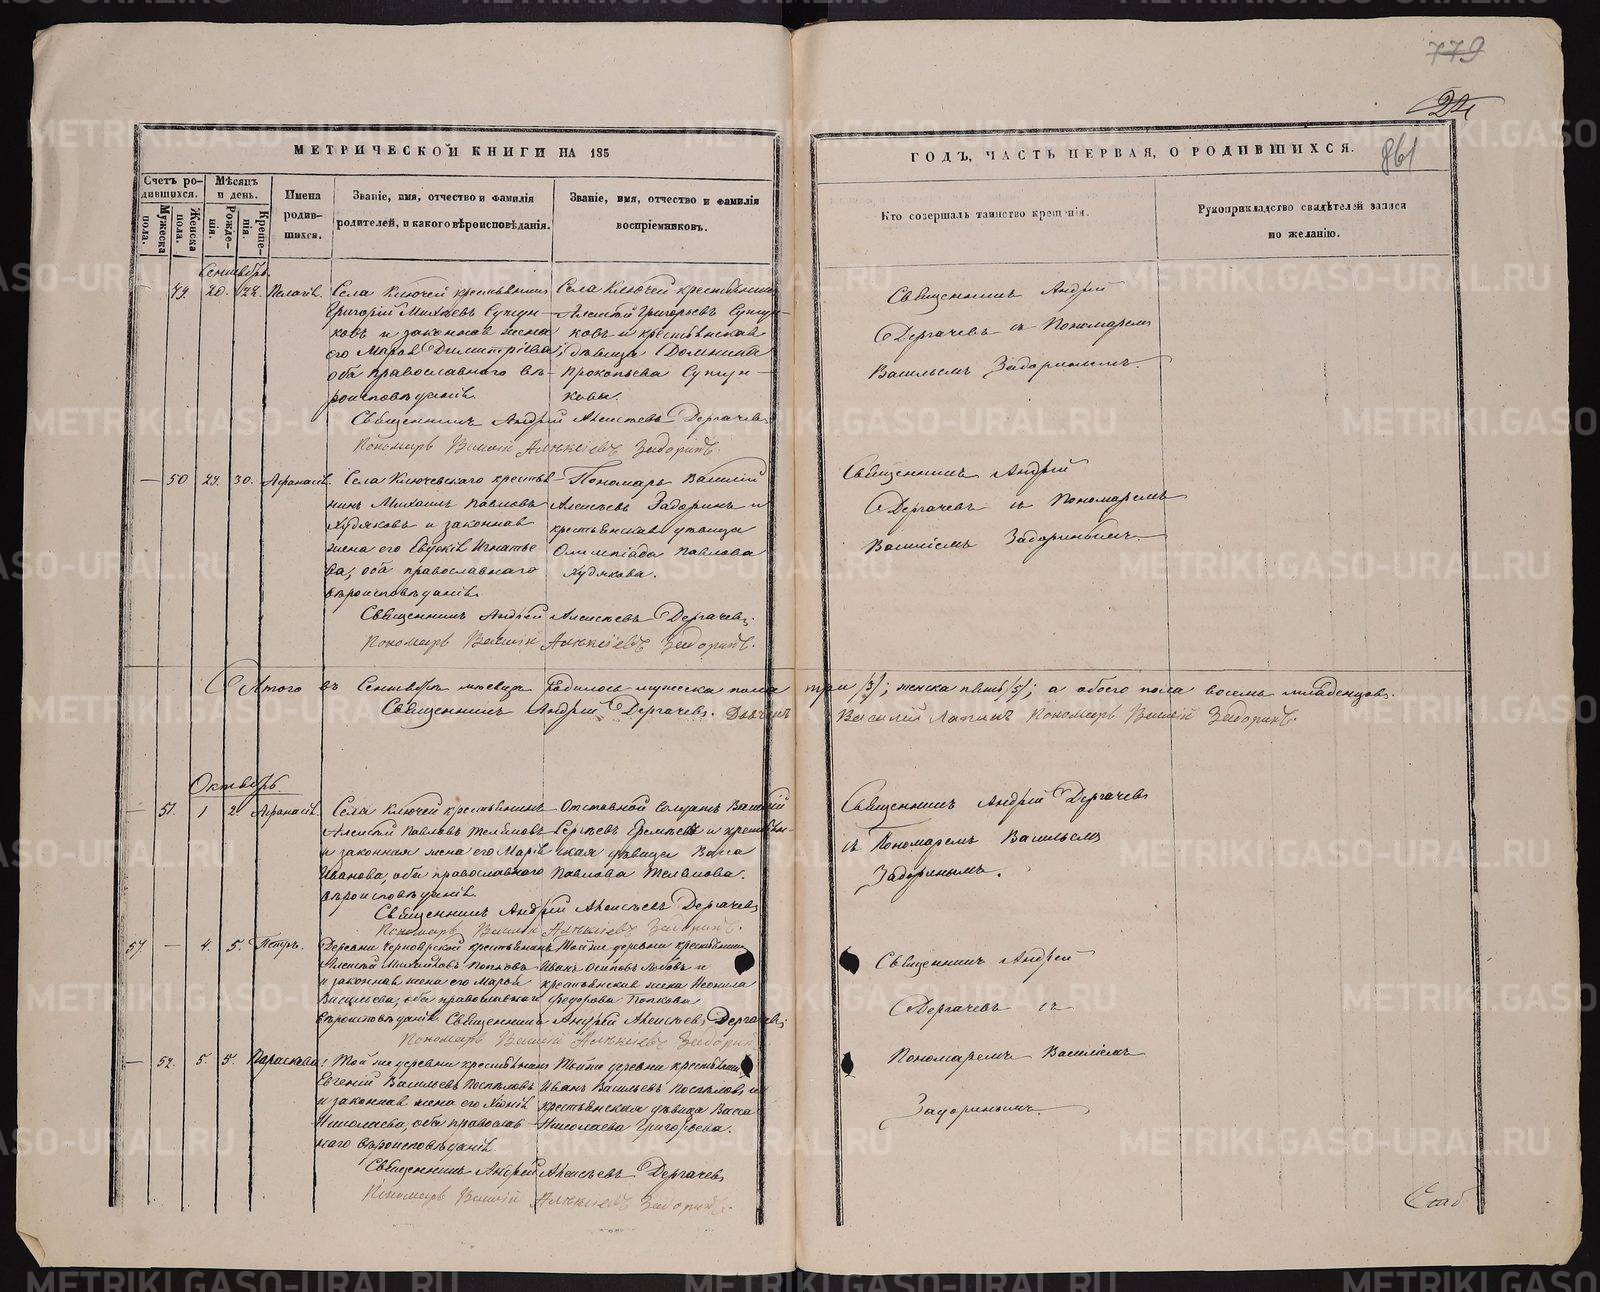 779
24
861
МЕТРИЧЕСКОЙ КНИГИ НА 185
ГОДЪ, ЧАСТЬ ПЕРВАЯ, О РОДИВШИХСЯ.
Счетъ родившихся.
Мужеска пола.
Женска пола.
Мѣсяцъ и день.
Рожденія.
Крещенія.
Имена родившихся.
Званіе, имя, отчество и фамилія родителей, и какого вѣроисповѣданія.
Званіе, имя, отчество и фамилія воспріемниковъ.
Кто совершалъ таинство крещенія.
Рукоприкладство свидѣтелей записи по желанію.
Сентябрь.
— 49. 20. 22. Пелагія.
Села Ключей крестьянинъ
Григорій
Сутун-
ковъ и законная жена
его Марѳа Димитріева,
оба православнаго вѣ-
роисповѣданія.
Села Ключей крестьянинъ
Алексѣй Григорьевъ Сутун-
ковъ и крестьянская
дѣвица Домника
Прокопьева Сутун-
кова.
Священникъ Андрей
Дергачевъ съ Пономаремъ
Васильемъ Задоринымъ.
Священникъ Андрей Алексѣевъ Дергачевъ
Пономарь Василій Алексѣевъ Задоринъ.
— 50 29. 30. Афанасія.
Села Ключевскаго крестья-
нинъ Михаилъ Павловъ
Худяковъ и законная
жена его Евдокія Игнатье
ва, оба православнаго
вѣроисповѣданія.
Пономарь Василій
Алексѣевъ Задоринъ и
крестьянская дѣвица
Олимпіада Павлова
Худякова.
Священникъ Андрей
Дергачевъ съ Пономаремъ
Василіемъ Задоринымъ.
Священникъ Андрей Алексѣевъ Дергачевъ.
Пономарь Василій Алексѣевъ Задоринъ.
Итого въ Сентябрѣ мѣсяцѣ родилось мужеска пола три /3/; женска пять /5/; а обоего пола восемь младенцовъ.
Священникъ Андрей Дергачевъ. Дьячекъ Василій Лапинъ Пономарь Василій Задоринъ.
Октябрь.
— 51. 1 2 Афанасія.
Села Ключей крестьянинъ
Алексѣй Павловъ
и законная жена его Марія
Иванова, оба православнаго
вѣроисповѣданія.
Отставной солдатъ Василій
Сергѣевъ Еремѣевъ и крестьян-
ская дѣвица Васса
Павлова
Священникъ Андрей Дергачевъ
съ Пономаремъ Васильемъ
Задоринымъ.
Священникъ Андрей Алексѣевъ Дергачевъ
Пономарь Василій Алексѣевъ Задоринъ.
57 — 4. 5. Петръ.
Деревни Черноярской крестьянинъ
Алексѣй Михайловъ Попковъ
и законная жена его Марья
Васильева, оба православнаго
вѣроисповѣданія.
Той же деревни крестьянинъ
Иванъ Осиповъ
и
крестьянская жена Неонила
Федорова Попкова
Священникъ Андрей
Дергачевъ съ
Священникъ Андрей Алексѣевъ Дергачевъ
Пономарь Василій Алексѣевъ Задоринъ
— 52. 5. 5. Параскева.
Той же деревни крестьянинъ
Евгеній Васильевъ Поспѣловъ
и законная жена его Хіонія
Николаева, оба православ-
наго вѣроисповѣданія.
Той же деревни крестьянинъ
Иванъ Васильевъ Поспѣловъ и
крестьянская дѣвица Васса
Николаева Григорьева.
Пономаремъ Василіемъ
Задоринымъ.
Священникъ Андрей Алексѣевъ Дергачевъ
Пономарь Василій Алексѣевъ Задоринъ.
METRIKI.GASO-URAL.RU